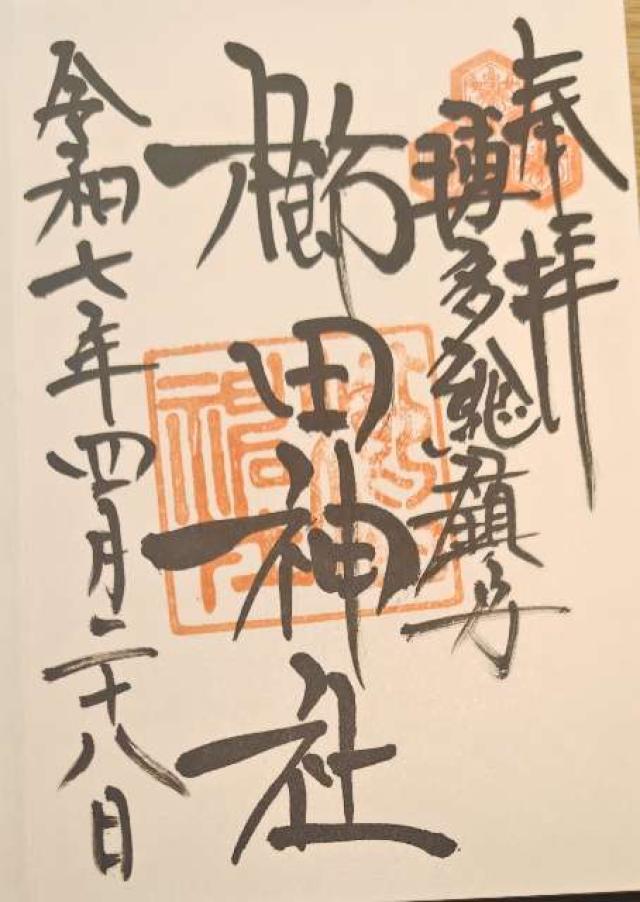 奉拝
博多總鎮守
櫛田神社
令和七年四月二十八日